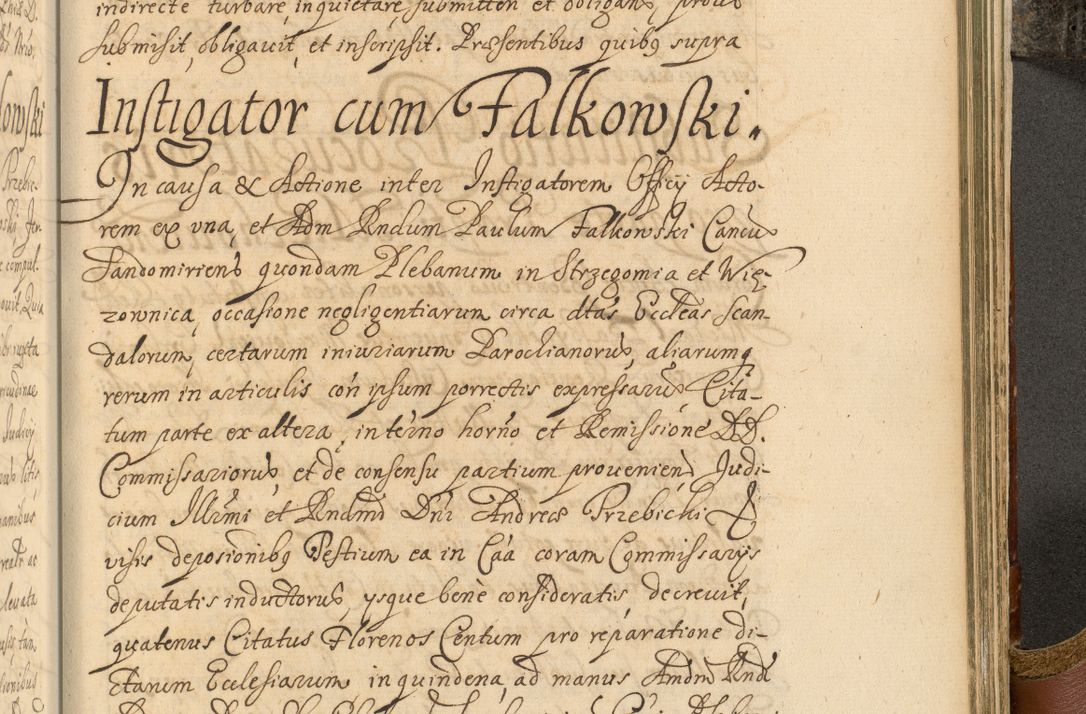 indirecte turbare, inquietare submitten et obligan, prout
submisit, obligauit, et inscripsit. Præsentibus quibus supra
Instigator cum Falkowski.
In causa & Actione inter Instigatorem Officij Acto-
rem ex una, et Adm Rndum Paulum Falkowski Cancum
Sandomiriens quondam Plebanum in Strzegomia et Wię-
zownica, occasione negligentiarum circa dtas Eccleas scan-
dalorum, certarum iniuriarum Parochianorum, aliarumq
rerum in articulis con ipsum porrectis expressarum Cita-
tum parte ex altera, in termo horno et Remissione DD.
Commissariorum, et de consensu partium provenien, Judi-
cium Illrmi et Rndmi Dni Andreæ Trzebicki E
visis deposionibus Testium ea in Caa coram Commissarijs
deputatis inductorum, ysque bene consideratis, decreuit,
quatenus Citatus Florenos Centum pro reparatione di-
ctarum Ecclesiarum in quindena, ad manus Andm Rnd